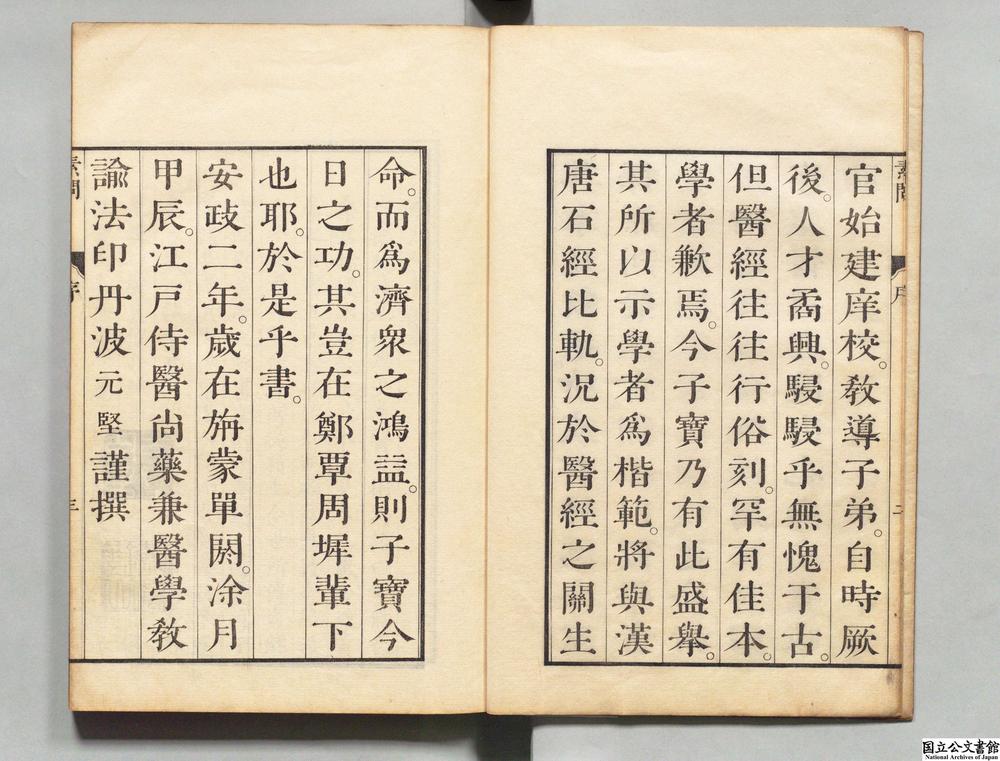 官始建庠校。教導子弟。自時厥
後。人才矞興。駸駸乎無愧于古。
但醫經往往行俗刻。罕有佳本。
學者歉焉。今子寶乃有此盛舉。
其所以示學者爲楷範。將與漢
唐石經比軌。況於醫經之關生
命。而爲濟衆之鴻益。則子寶今
日之功。其豈在鄭覃周墀輩下
也耶。於是乎書。
安政二年。歳在旃蒙單閼。涂月
甲辰。江戸侍醫尚藥兼醫學教
諭法印丹波元堅謹撰
素問
序
二
素問
序
三
国立公文書館
National Archives of Japan